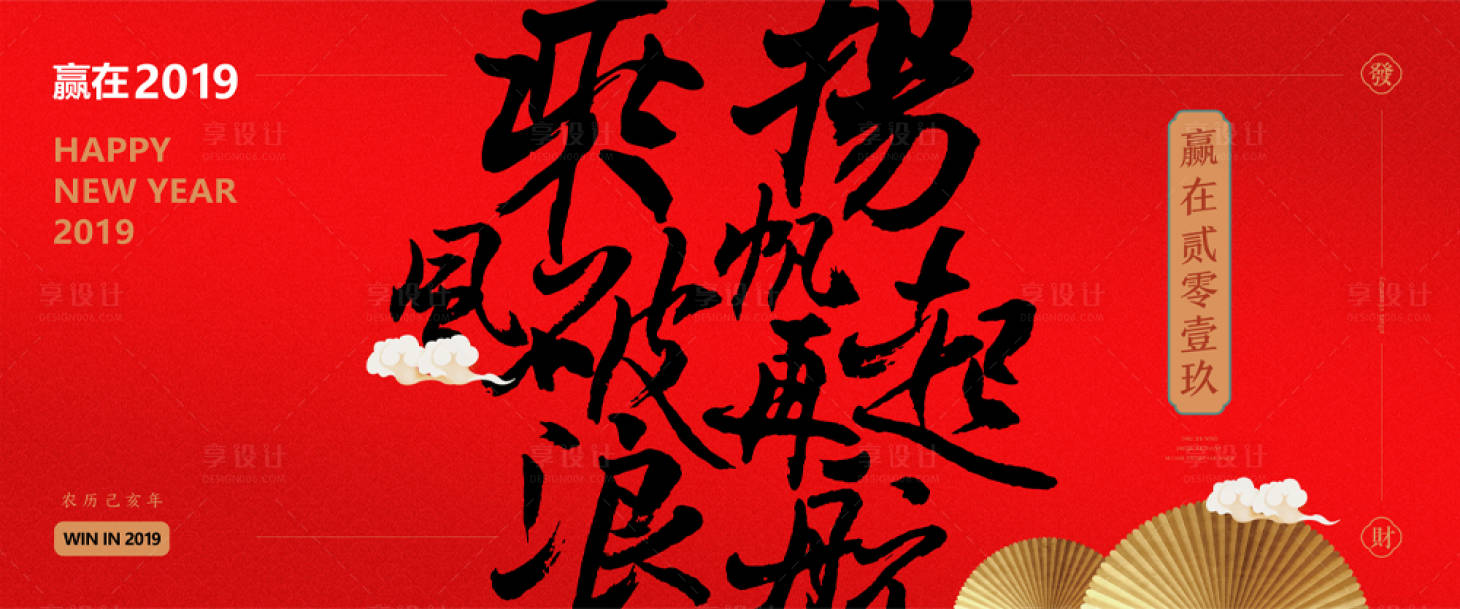 赢在2019
HAPPY
NEW YEAR
2019
農历己亥年
WIN IN 2019
揚帆再起航
乘風破浪
赢在贰零壹玖
發
財
享设计
DESIGN006.COM